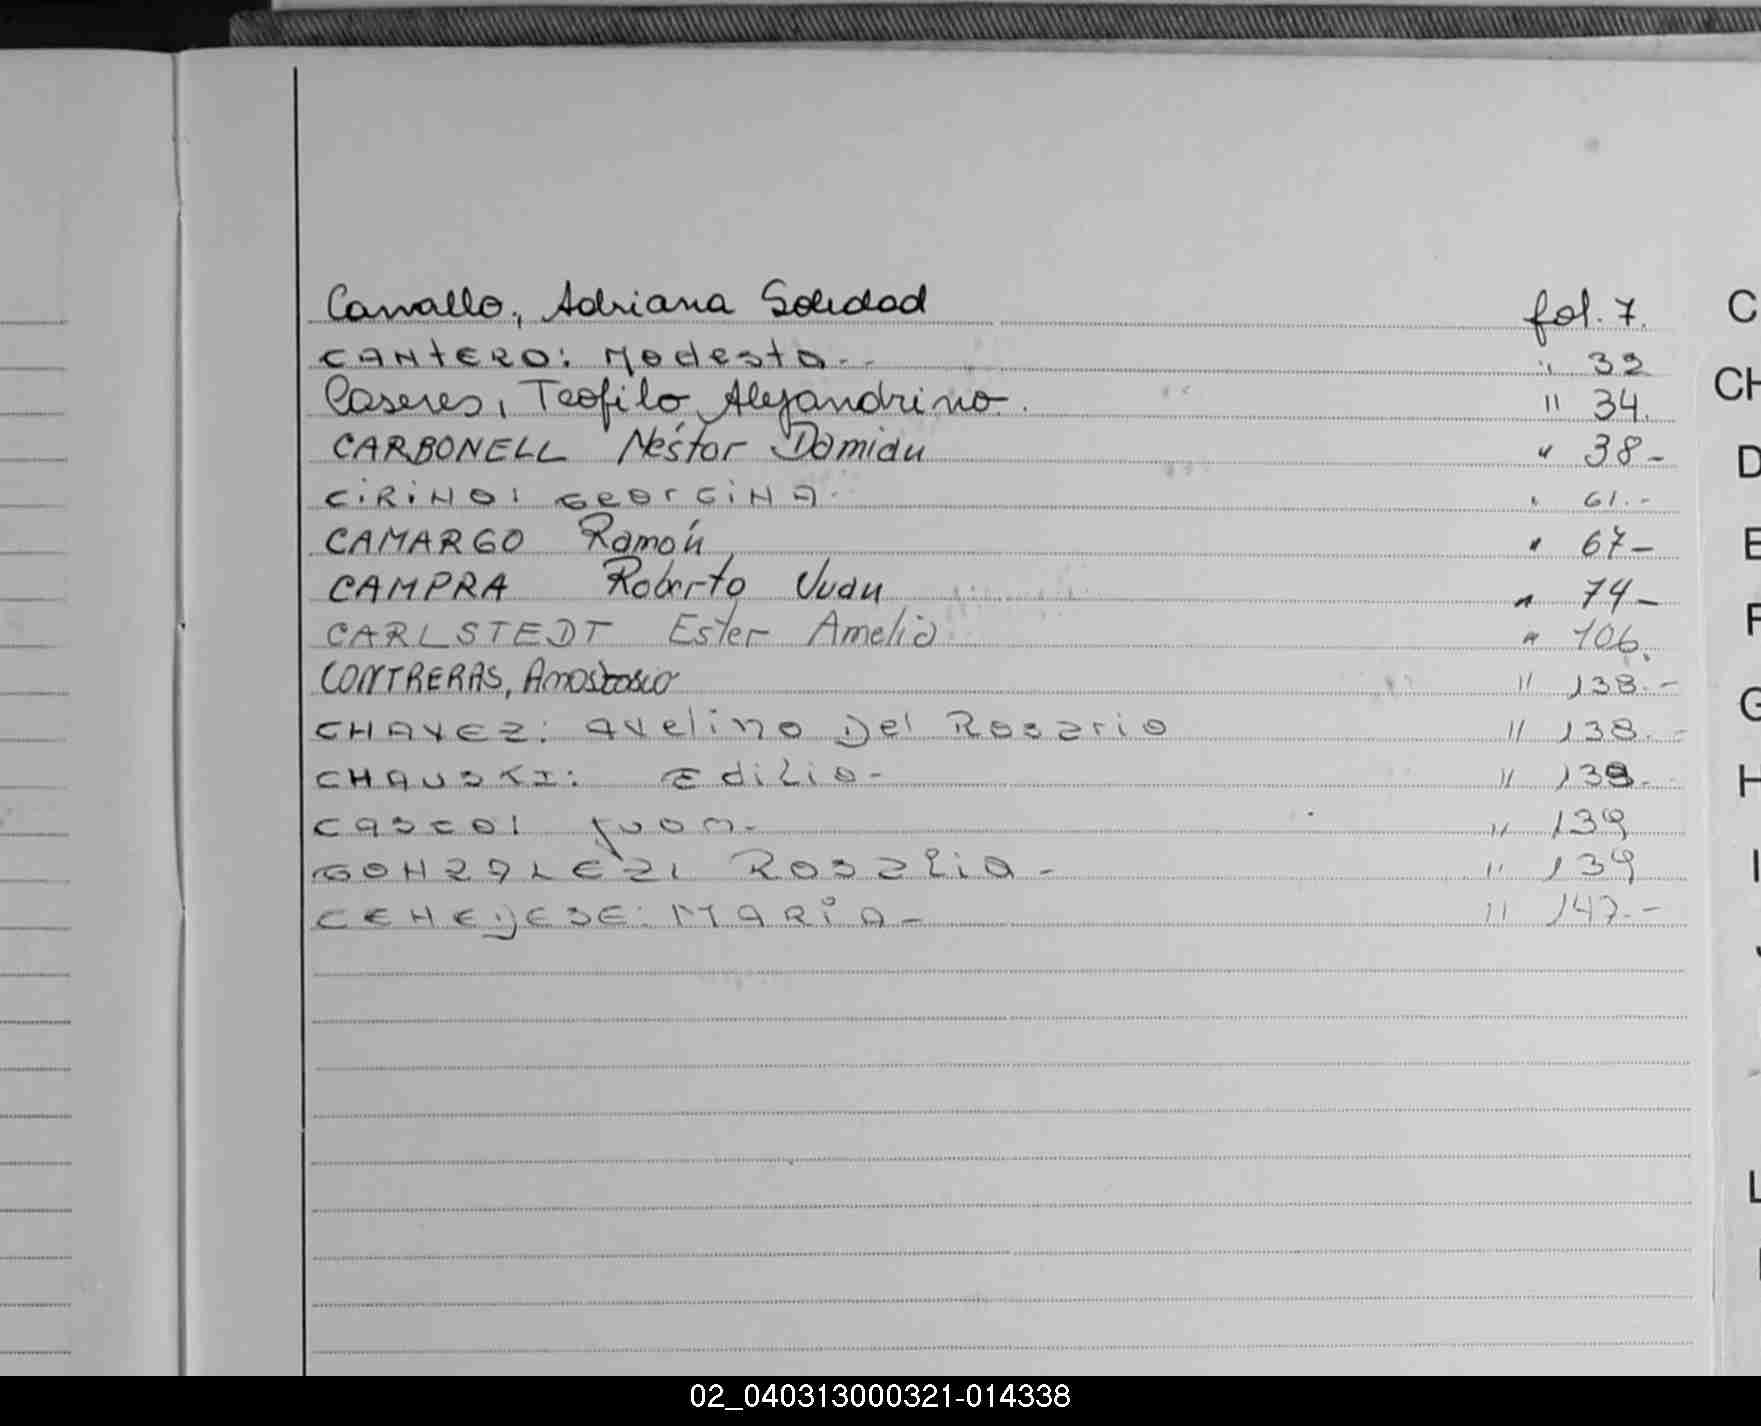 Carvallo, Adriana Soledad fol. 7.
CANTERO: Modesta.-- " 32
Caseres, Teofilo Alejandrino. " 34.
CARBONELL Néstor Damian " 38-
CIRINO: GEORGINA. " 61.-
CAMARGO Ramón " 67-
CAMPRA Roberto Juan " 74-
CARLSTEDT Ester Amelia " 106.
CONTRERAS, Anastasio " 138.-
CHAVEZ: Avelino Del Rosario " 138.-
CHAUSKI: Edilia- " 138.-
CASCO: Juan.- " 139
GONZALEZ: Rosalia- " 139
CENEJESE: MARIA- " 147.-
C
CH
D
E
F
G
H
I
J
L
02_040313000321-014338